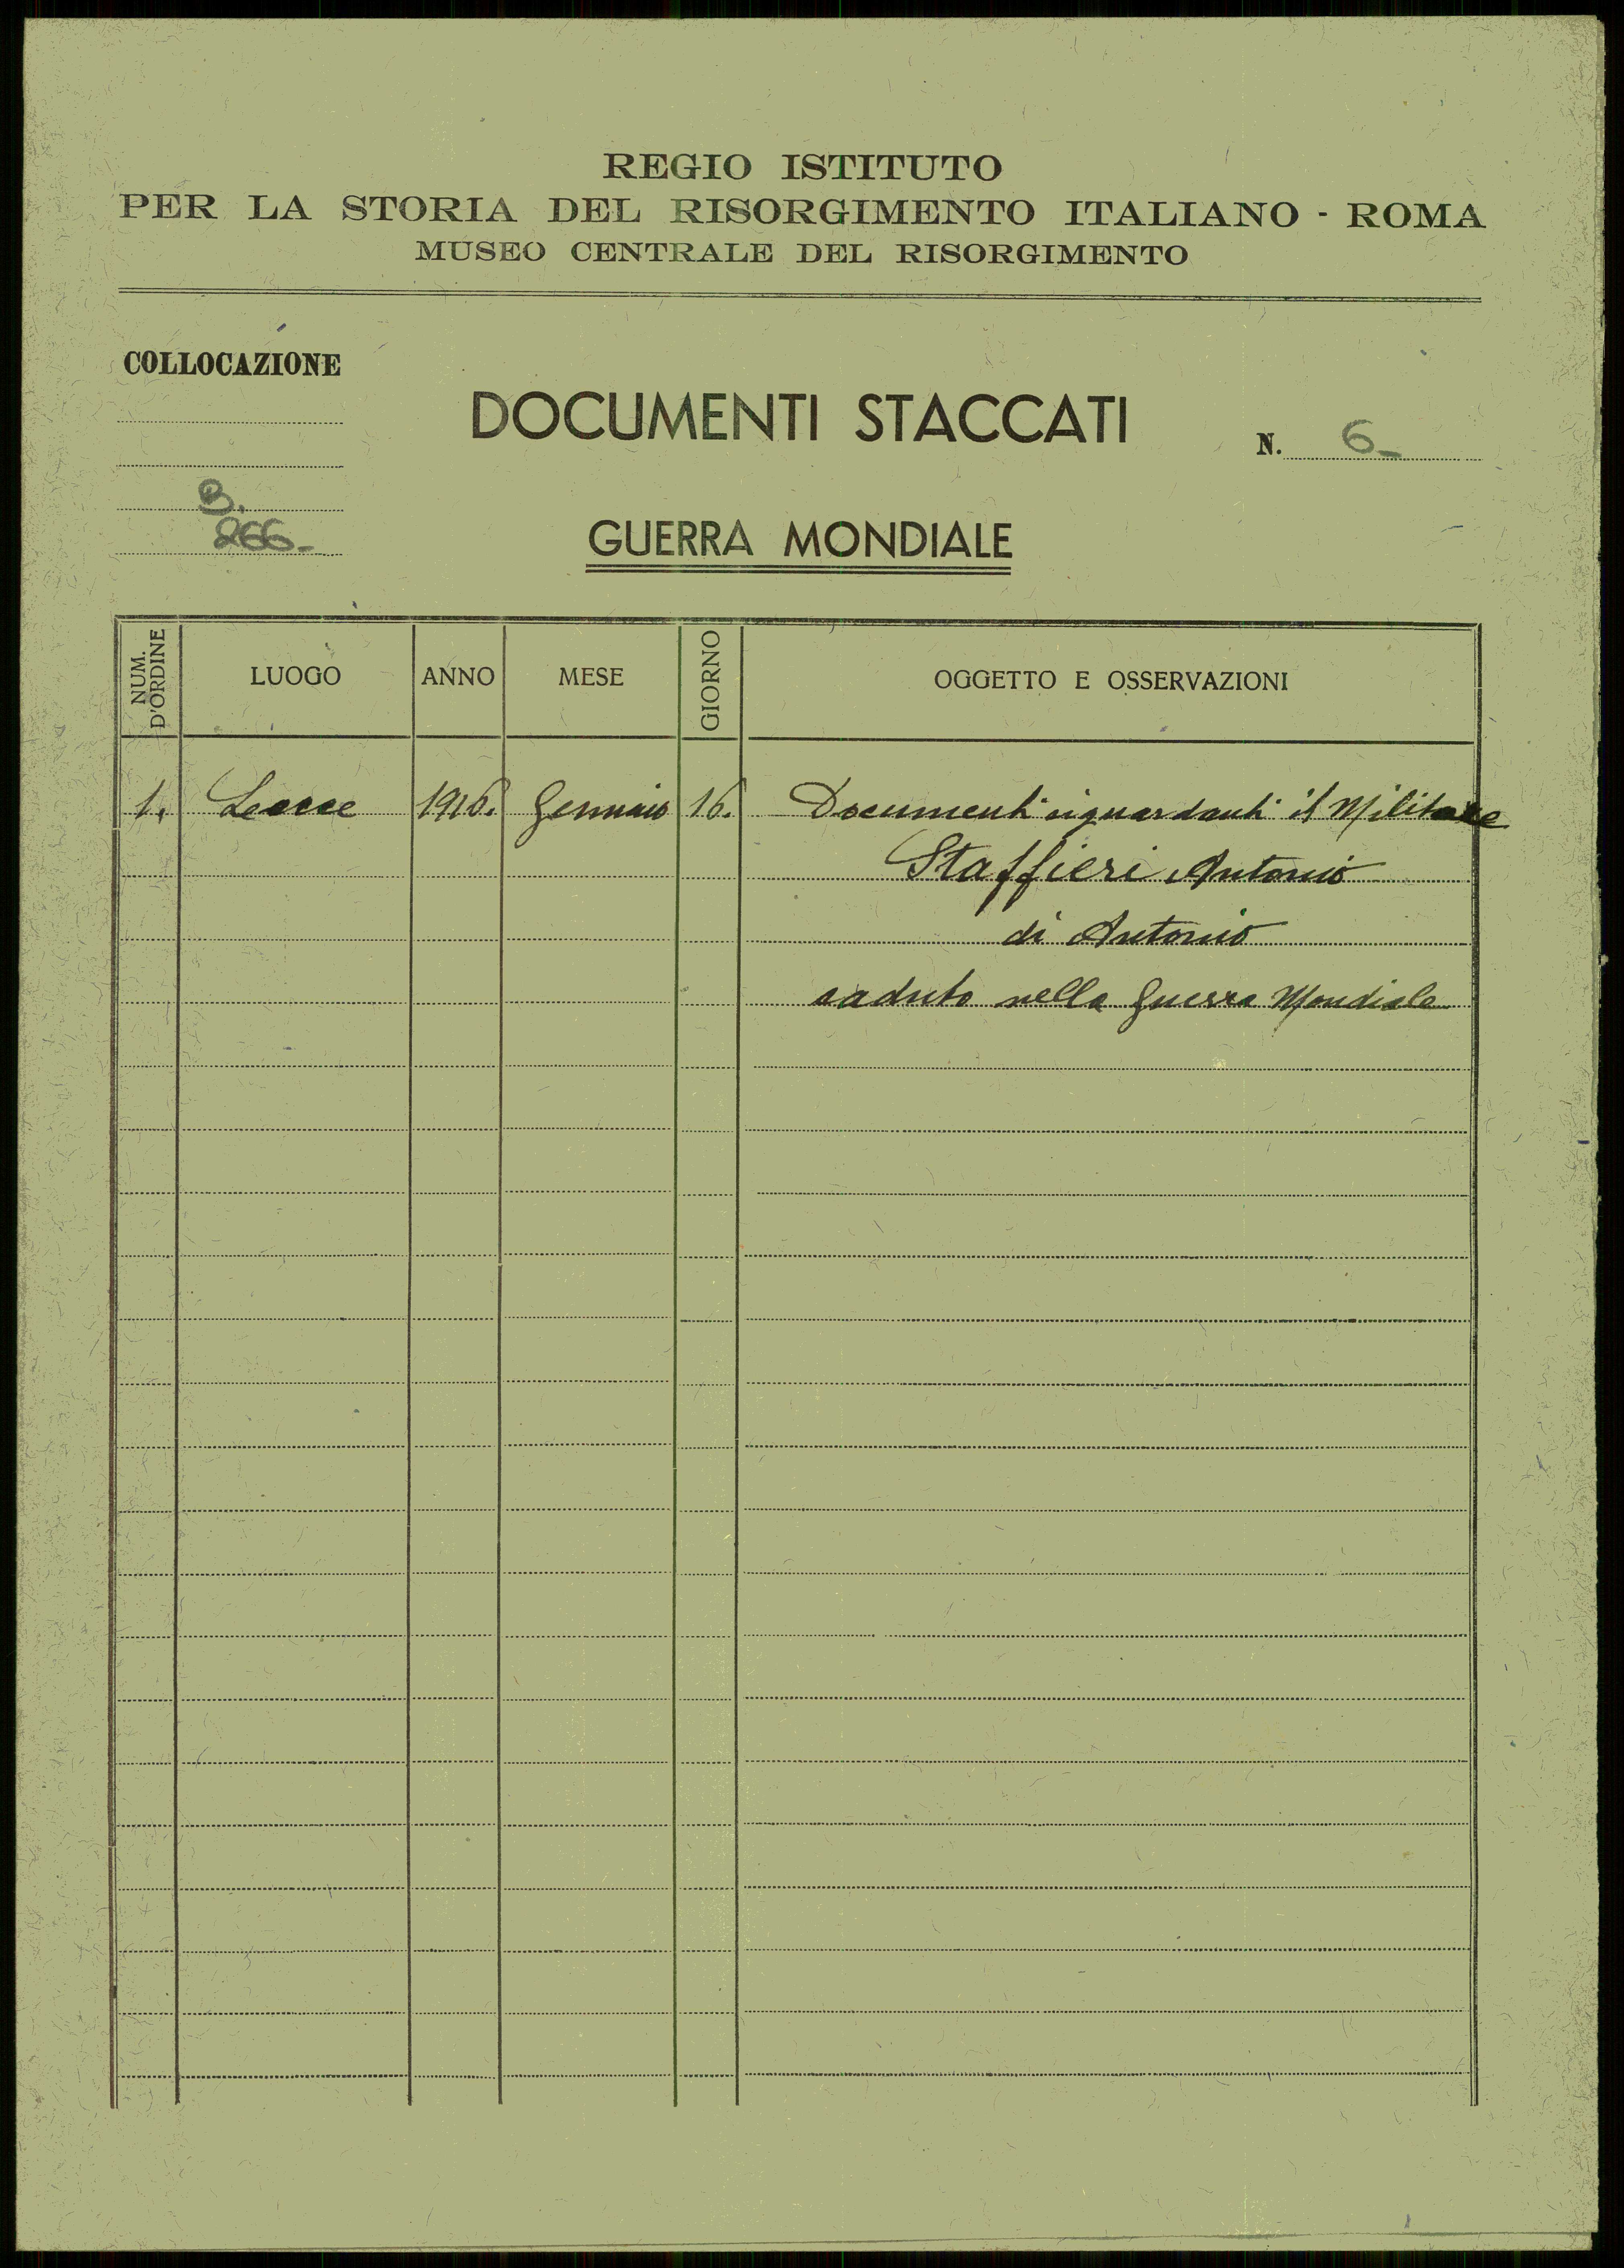 REGIO ISTITUTO
PER LA STORIA DEL RISORGIMENTO ITALIANO - ROMA
MUSEO CENTRALE DEL RISORGIMENTO
COLLOCAZIONE
DOCUMENTI STACCATI
N. 6-
B.
266-
GUERRA MONDIALE
NUM. D'ORDINE LUOGO ANNO MESE GIORNO OGGETTO E OSSERVAZIONI
1. Lecce 1916. Gennaio 16. Documenti riguardanti il Militare
Staffieri Antonio
di Antonio
caduto nella Guerra Mondiale